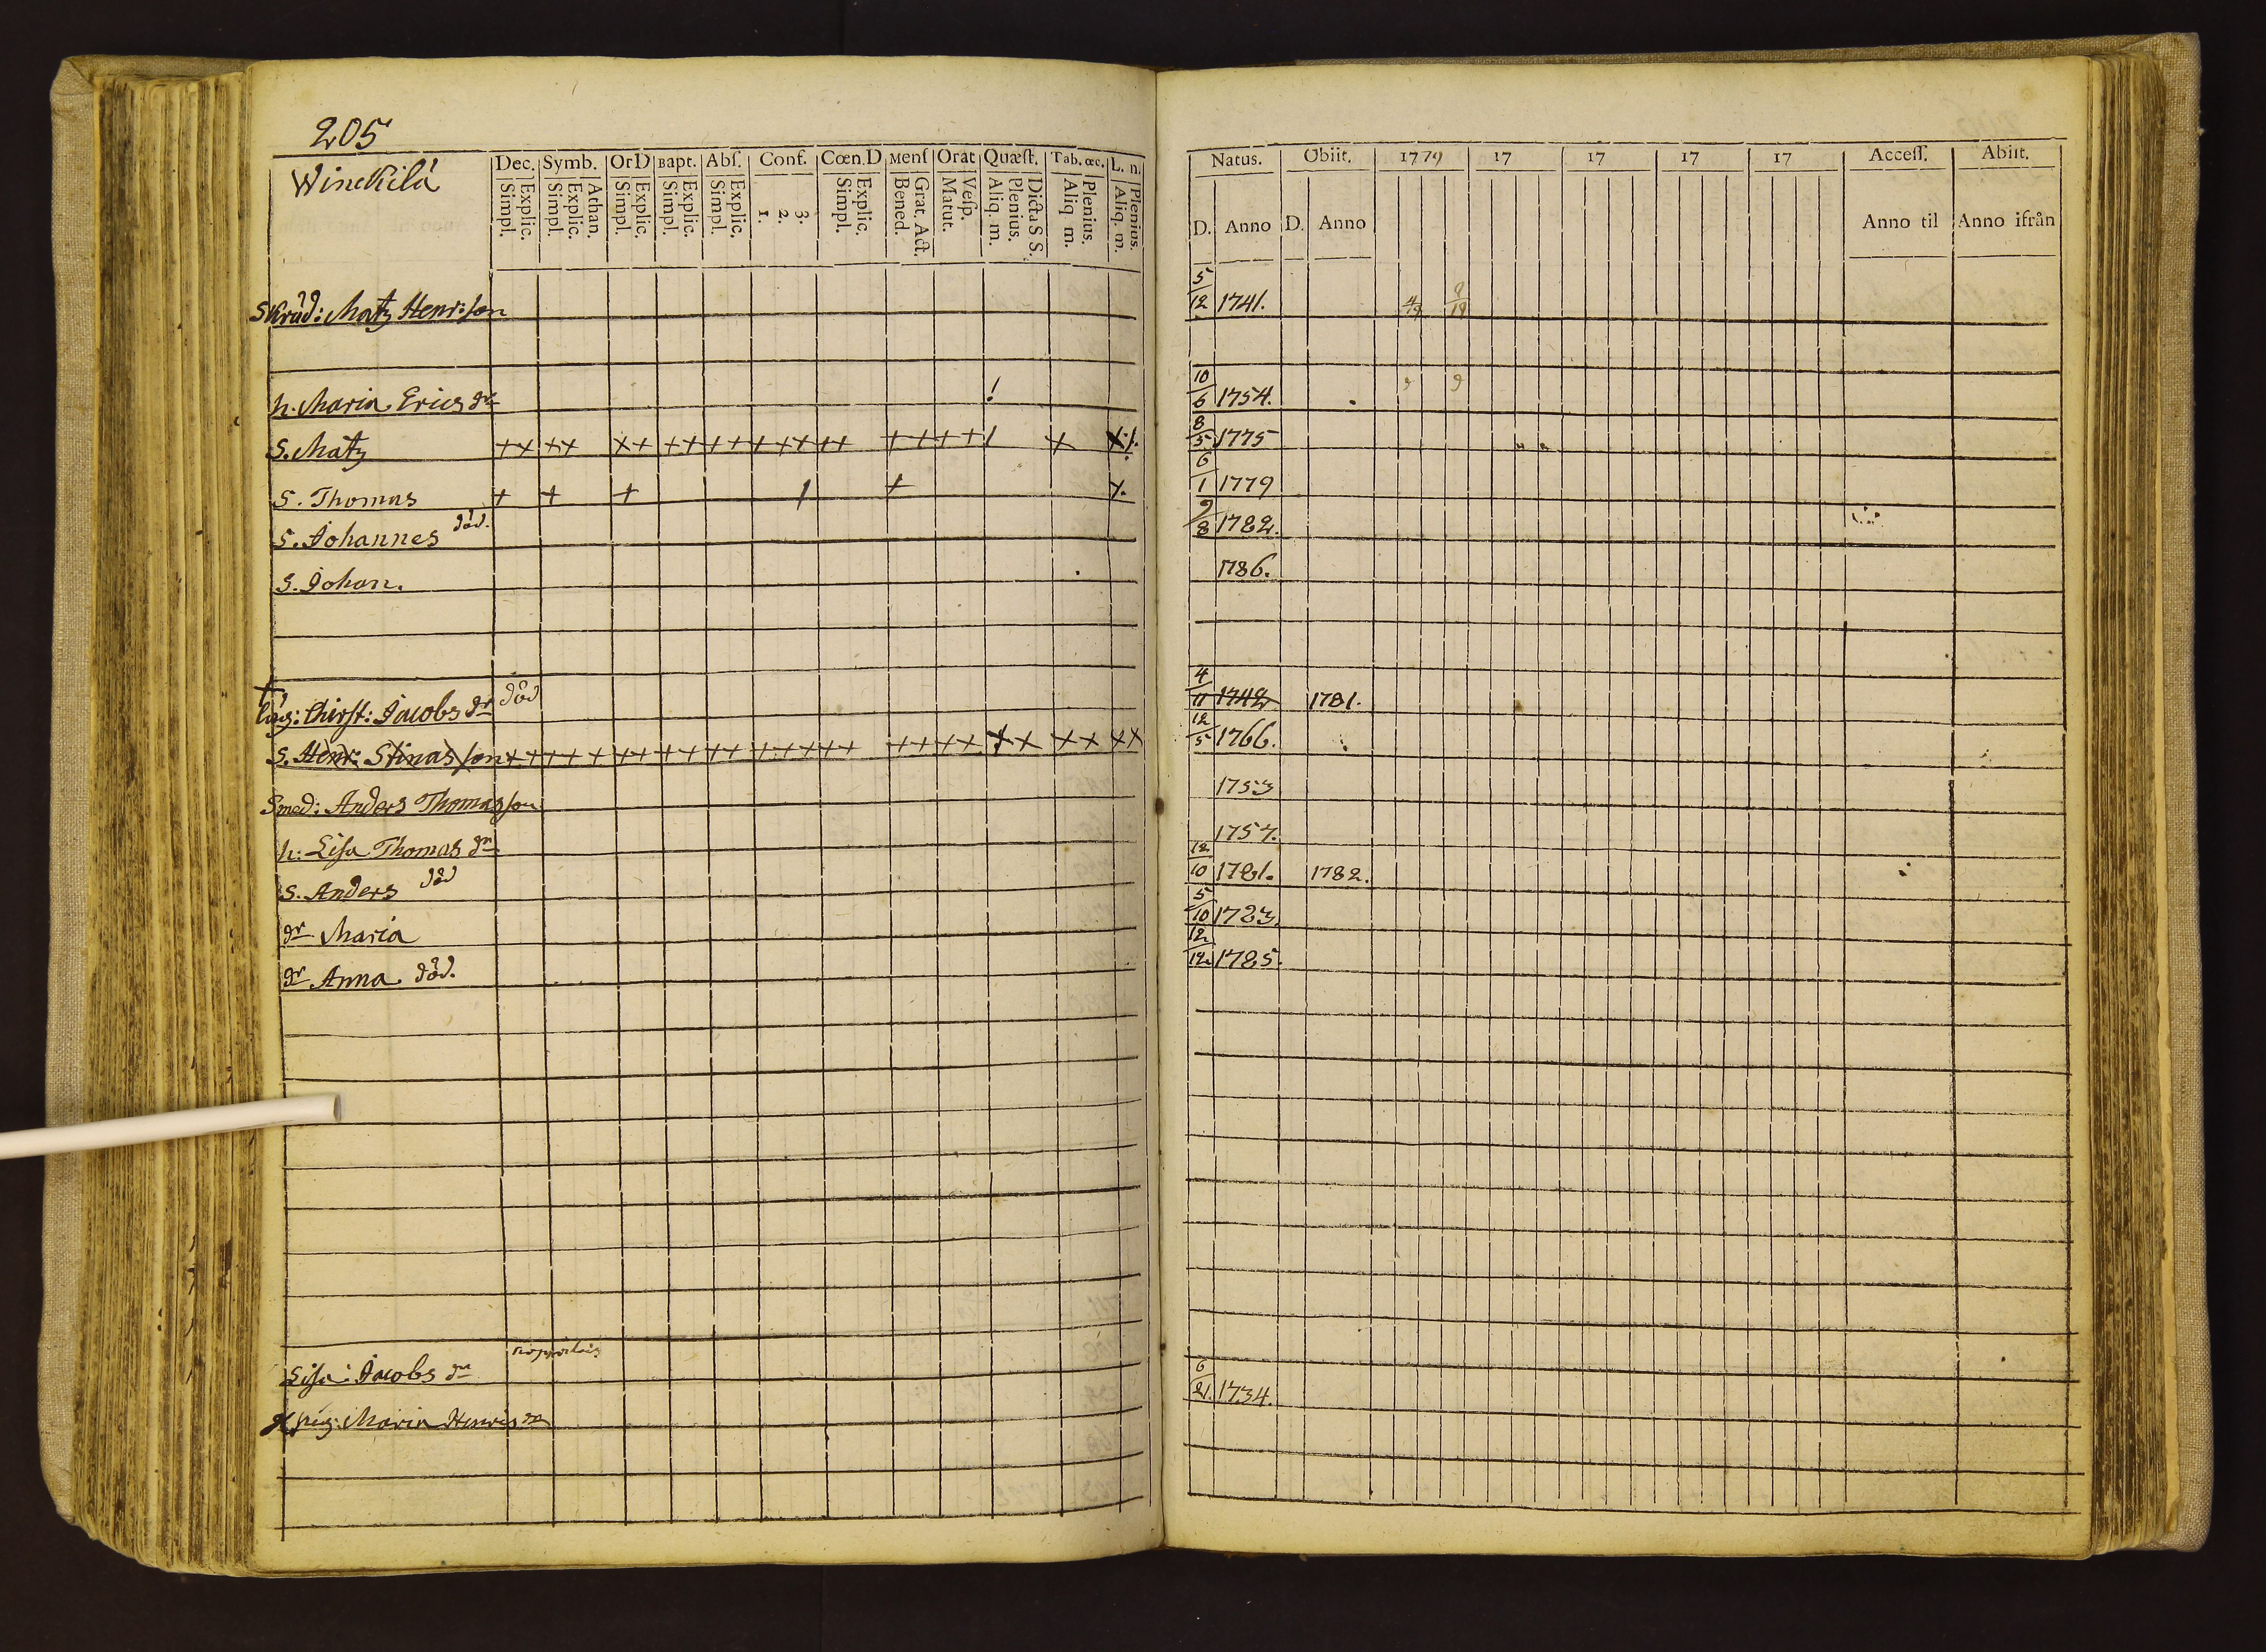 205
Winckilä
Dec. Symb. OrD Bapt. Abſ. Conf. Cœn.D Menſ Orat Quæſt. Tab. œc. L. n.
Simpl. Explic. Simpl. Explic. Athan. Simpl. Explic. Simpl. Explic. Simpl. Explic. 1. 2. 3. Simpl. Explic. Bened. Grat. Act. Matut. Veſp. Aliq. m. Plenius. Dicta S S. Aliq m. Plenius. Aliq. m. Plenius.
Natus. Obiit. 1779 17 17 17 17 Acceſſ. Abiit.
D. Anno D. Anno Anno til Anno ifrån
Skräd: Matz Henr:ſon 5/12 1741.
h. Maria Erics dr 10/6 1754.
S. Matz 8/5 1775
S. Thomas 6/1 1779
S. Johannes död. 9/8 1782.
S. Johan. 1786.
Chirſt: Jacobs dr död 4/11 1742 1781.
S. Henr: Stinas ſon 12/5 1766.
Smed: Anders Thomasſon 1753
h: Liſa Thomas dr 1757.
S. Anders död 12/10 1781. 1782.
dr Maria 5/10 1783.
dr Anna död. 12/12 1785.
Liſa: Jacobs dr 6/21. 1734.
pig: Maria Henrics dr